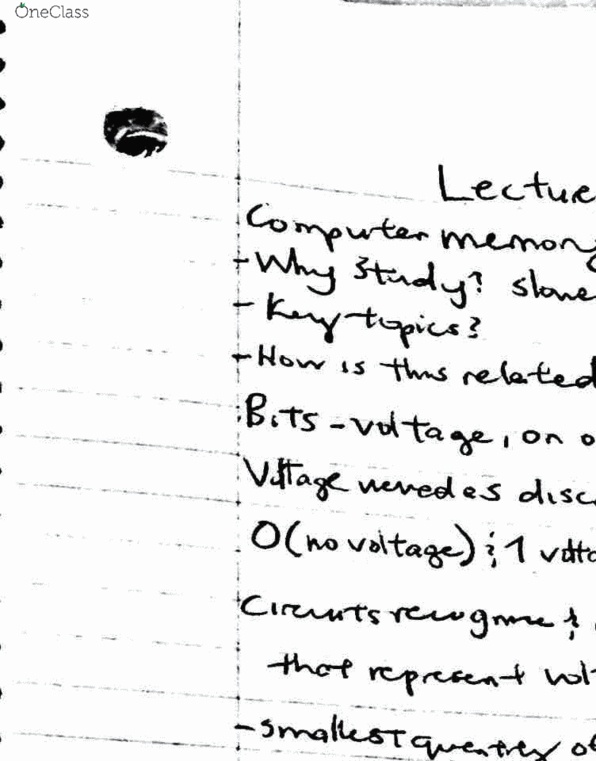 OneClass
Lecture
Computer memory
- Why study? slowe
- Key topics?
- How is this related
Bits - voltage, on o
Voltage viewed as disc
0 (no voltage) & 1 volta
Circuits recognize &
that represent vol
- smallest quantity of